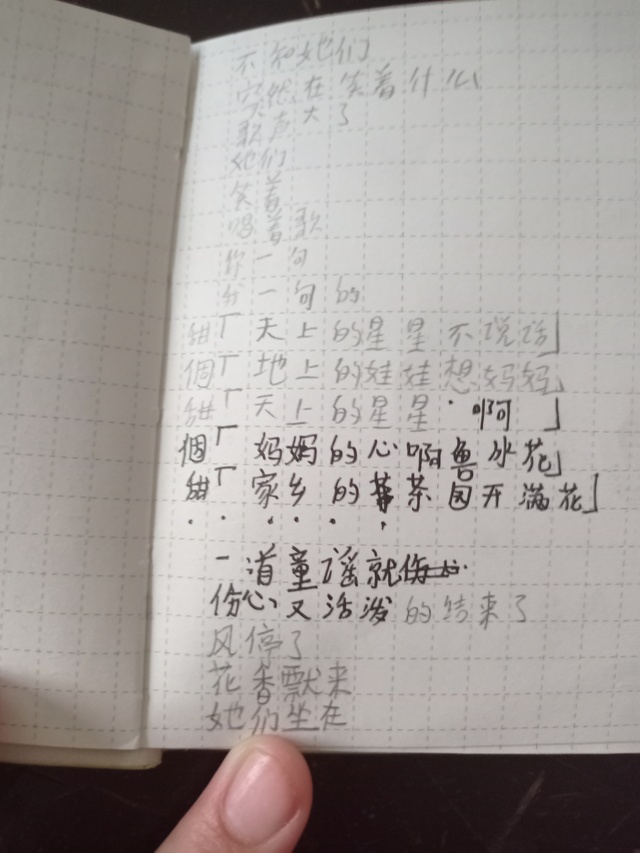 不知她们
突然在笑着什么
歌声大了
她们
笑着
唱着歌
你一句
我一句的
甜「天上的星星不说话」
個「地上的娃娃想妈妈」
甜「天上的星星·啊」
個「妈妈的心啊鲁冰花」
甜「家乡的茶园开满花」
· · · · · ·
一道童谣就
伤心又活泼的结来了
风停了
花香飘来
她们坐在